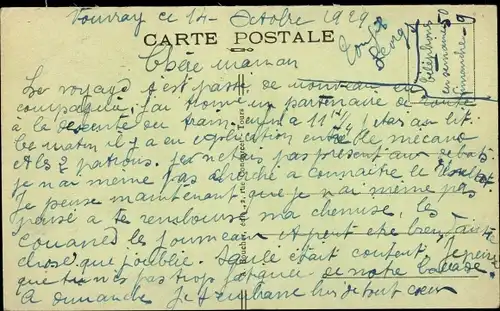 Vouvray ce 14 Octobre 1929
CARTE POSTALE
Chère maman
Le voyage s'est passé de nouveau en
compagnie, j'ai trouvé un partenaire de route
à la descente du train. enfin à 11 h 1/4 j'étais au lit.
Ce matin il y a eu explication entre le mécano
et les 2 patrons. je n'étais pas présent aux débats
je n'ai même pas cherché à connaître le résultat
Je pense maintenant que je n'ai même pas
pensé à te rembourser ma chemise, les
le journeau et peut être bien autre
chose que j'oublie. était content. Je pense
que tu n'es pas trop fatiguée de notre balade.
A dimanche Je t'embrasse bien de tout cœur
téléphones
en semaine 50
dimanche 9